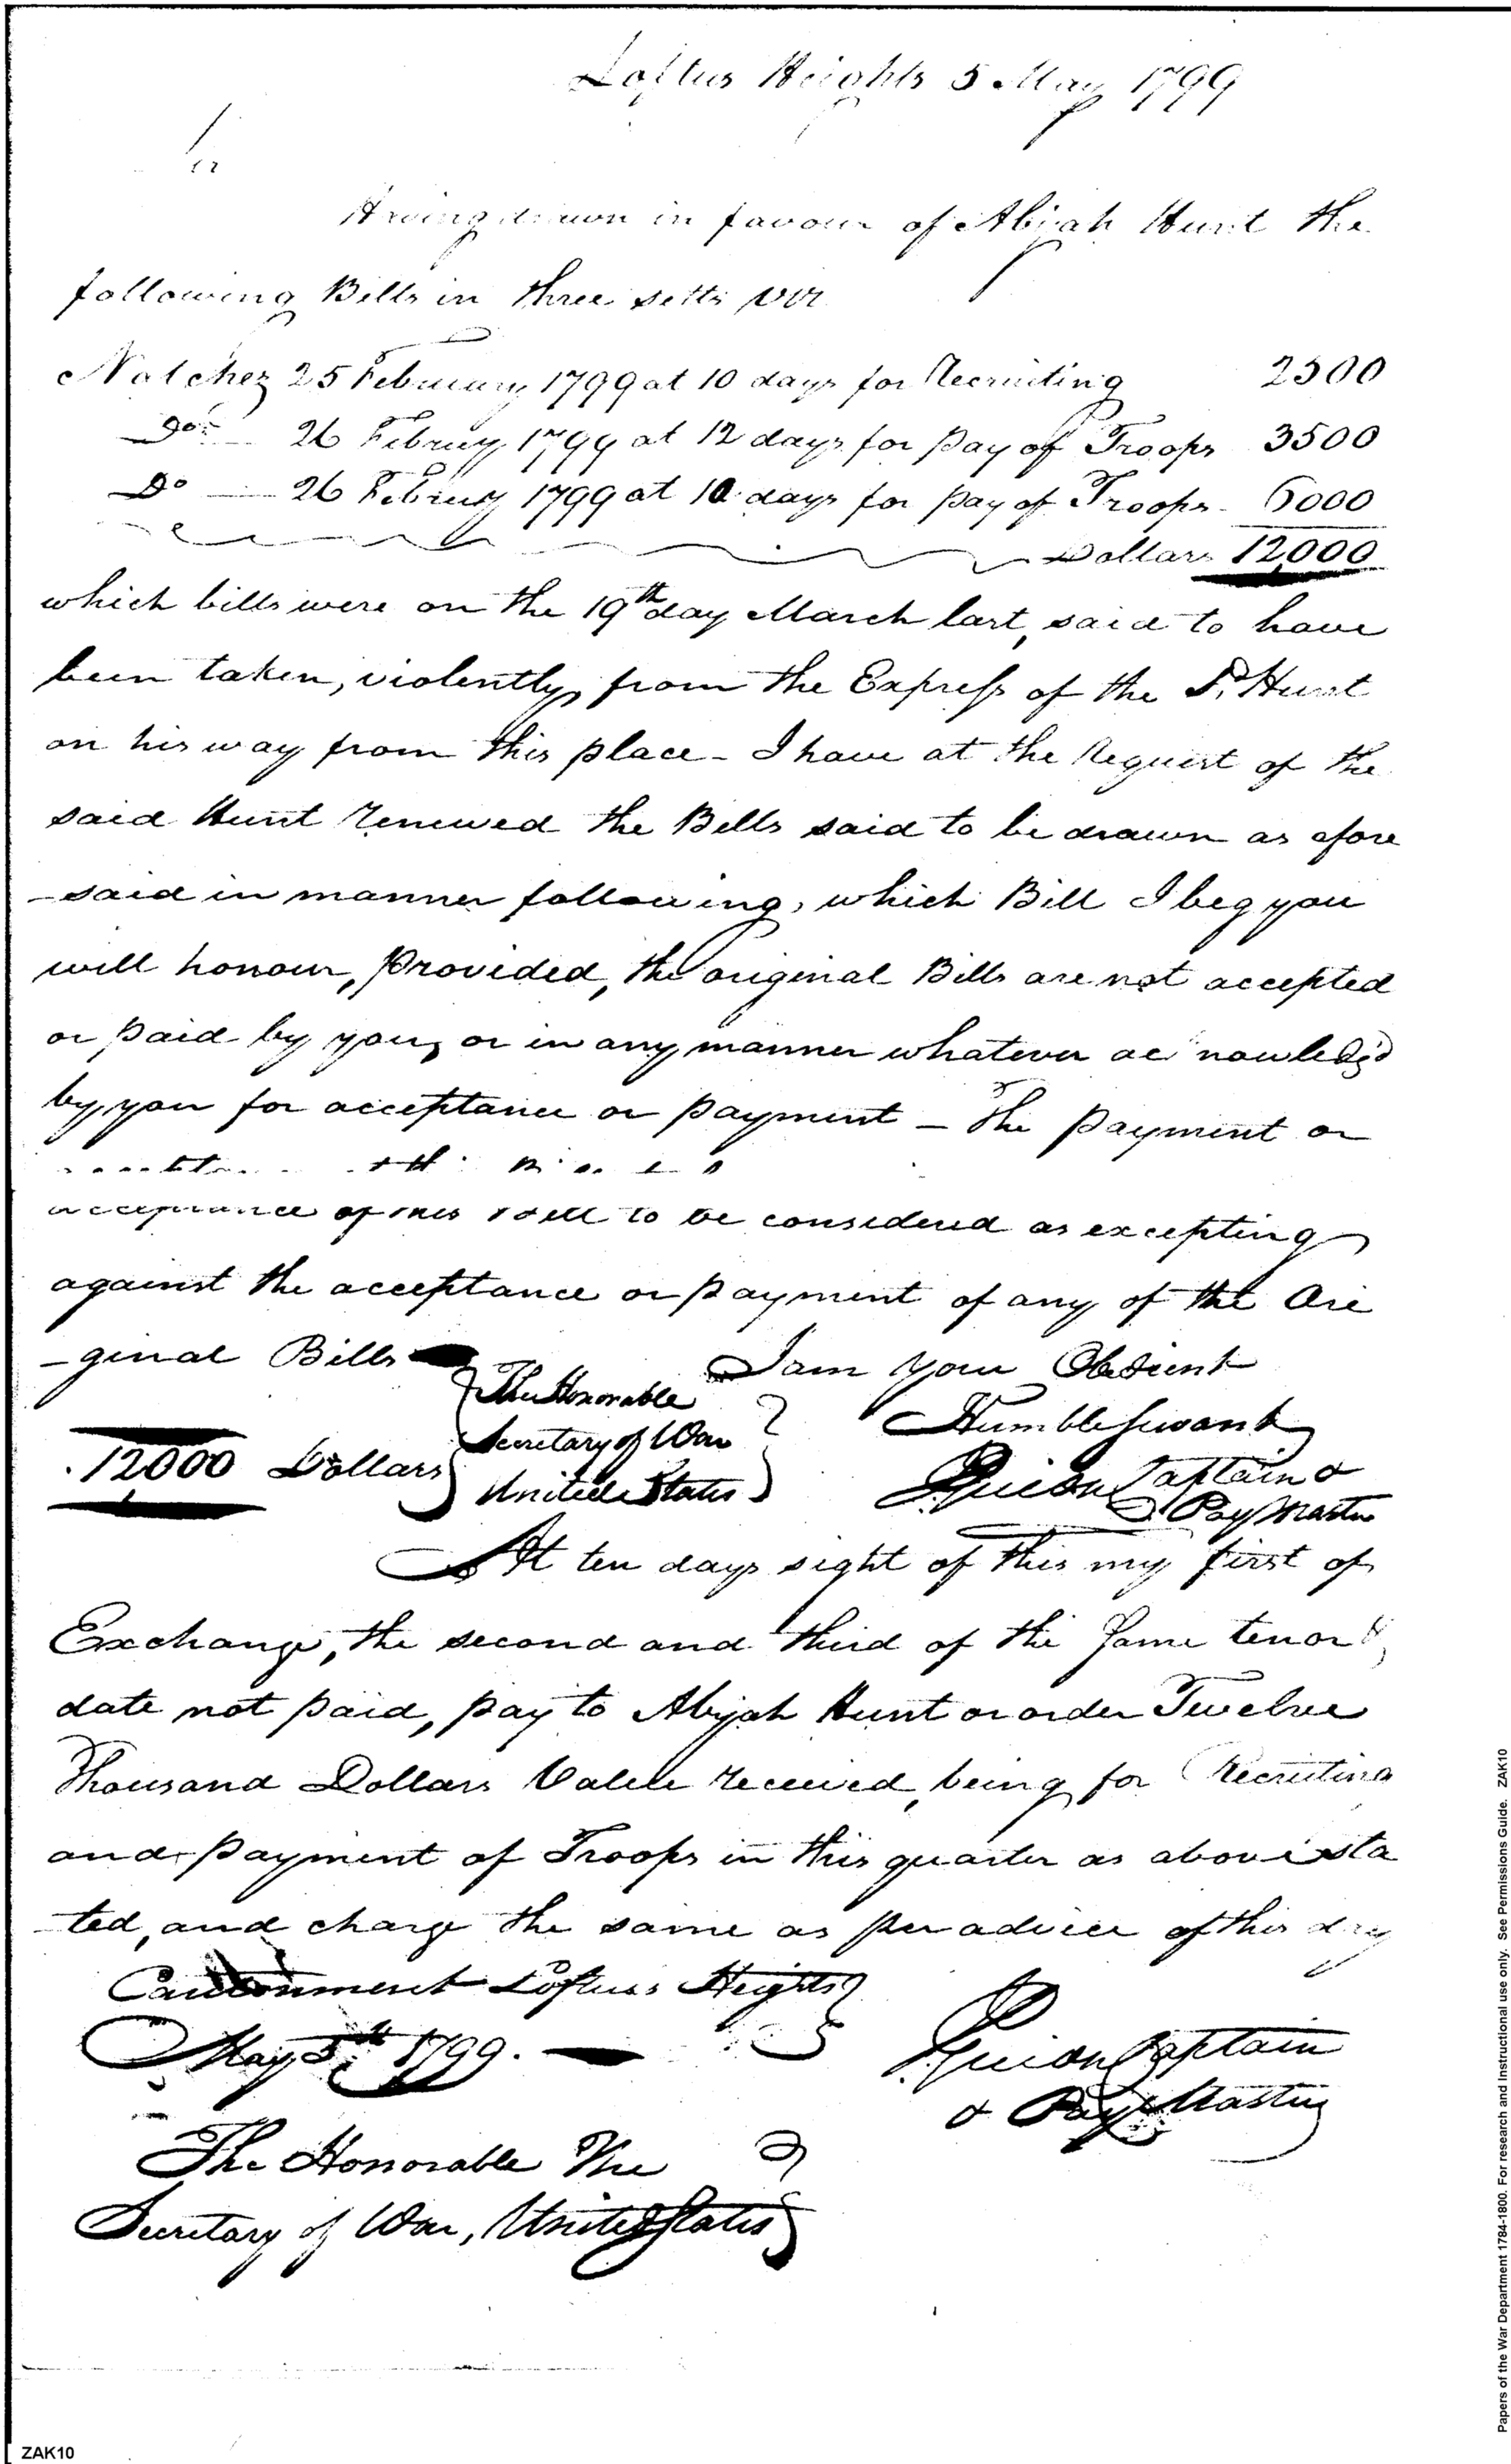 Loftus Heights 5 May 1799
Sir
Having drawn in favour of Abijah Hunt the
following Bells in three setts viz
Natchez 25 February 1799 at 10 days for Recruiting 2500
Do 26 Februy 1799 at 12 days for pay of Troops 3500
Do 26 Februy 1799 at 10 days for pay of Troops 6000
Dollars 12000
which bills were on the 19th day March last, said to have
been taken, violently, from the Express of the Sd. Hunt
on his way from this place - I have at the Request of the
said Hunt renewed the Bells said to be drawn as afore
-said in manner following, which Bill I beg you
will honour, Provided, the original Bills are not accepted
or paid by you, or in any manner whatever acknowledg'd
by you for acceptance or payment - The payment or
acceptance of this Bill to be considered as excepting
against the acceptance or payment of any of the Ori
-ginal Bills I am your Obedient
The Honorable
Secretary of War
United States
Humble Servant
12000 Dollars
Guion Captain &
Pay Master
At ten days sight of this my first of
Exchange, the second and third of the same tenor &
date not paid, pay to Abijah Hunt or order Twelve
Thousand Dollars Value received, being for Recruiting
and payment of Troops in this quarter as above sta
-ted, and charge the same as per advice of this day
Cantonment Loftuss Heights
May 5th 1799.
Guion Captain
& Pay Master
The Honorable The
Secretary of War, United States
ZAK10
Papers of the War Department 1784-1800. For research and Instructional use only. See Permissions Guide. ZAK10